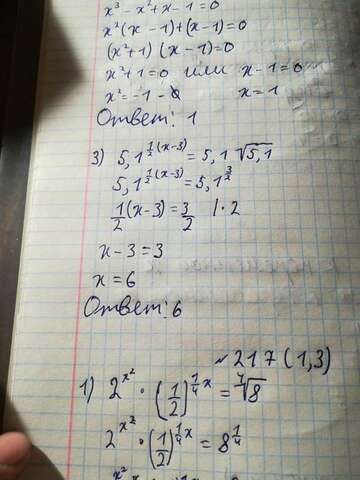 x³ - x² + x - 1 = 0
x²(x - 1) + (x - 1) = 0
(x² + 1)(x - 1) = 0
x² + 1 = 0 или x - 1 = 0
x² = -1 - ∅ x = 1
Ответ: 1
3) 5,1^(1/2(x-3)) = 5,1 √5,1
5,1^(1/2(x-3)) = 5,1^(3/2)
1/2 (x - 3) = 3/2 | · 2
x - 3 = 3
x = 6
Ответ: 6
~ 217 (1,3)
1) 2^(x²) · (1/2)^(7/4 x) = ⁴√8
2^(x²) · (1/2)^(7/4 x) = 8^(1/4)